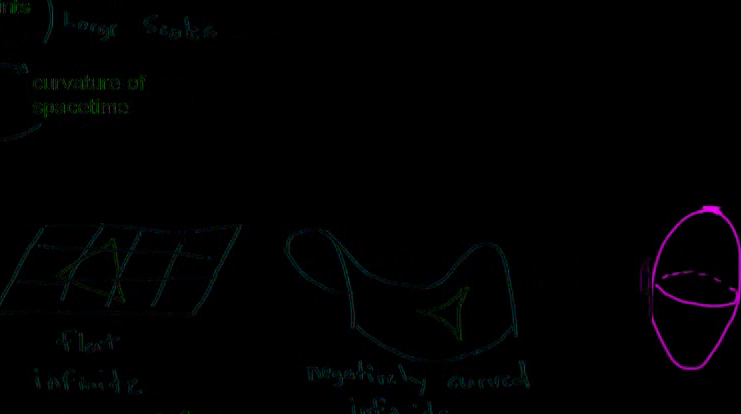 nts
Large Scales
curvature of
spacetime
flat
infinite
negatively curved
infinite